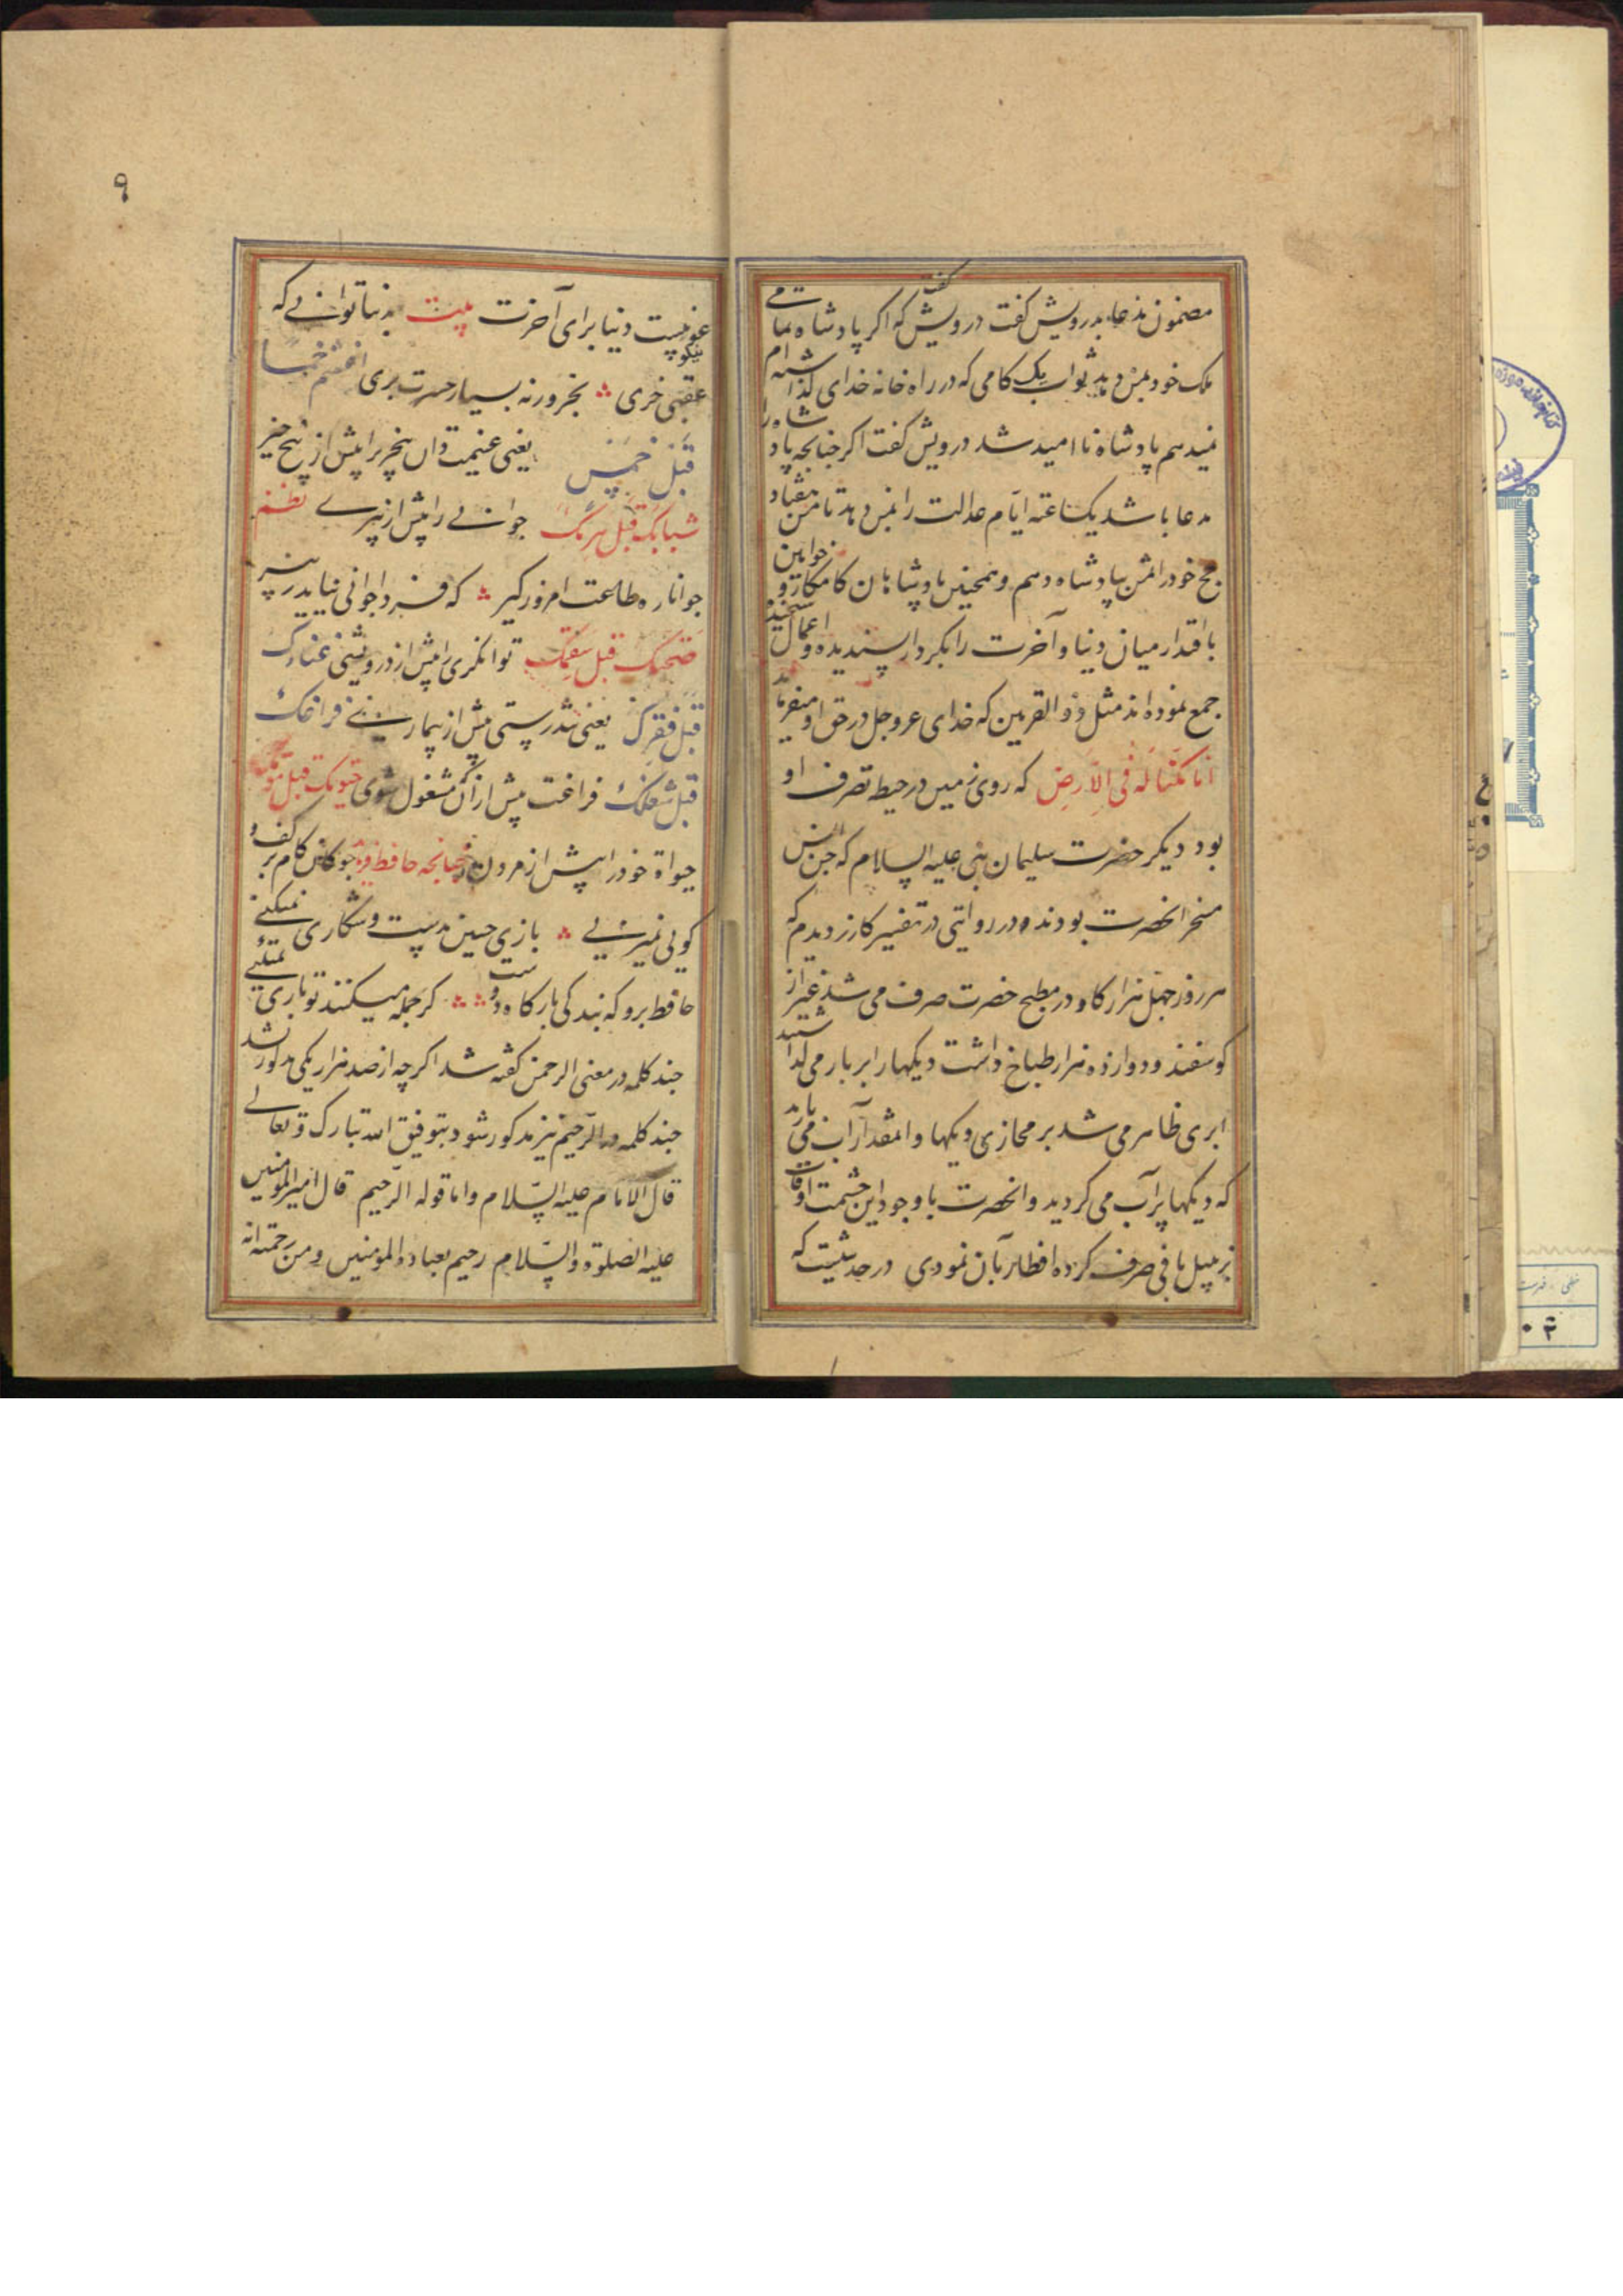 مضمون مدعا بدرویش گفت درویش گفت که اگر پادشاه تمامی
ملک خود بمن دهد ثواب یک کامی که در راه خانه خدای گذاشته ام
نمیدهم پادشاه ناامید شد درویش گفت اگر چنانچه پادشاه را
مدعا باشد یکساعته ایام عدالت را بمن دهد تا من هفتاد
حج خود را تمن بپادشاه دهم و همچنین پادشاهان کامکار و خواقین
با اقتدار میان دنیا و آخرت را بکردار پسندیده و اعمال سنجیده
جمع نموده اند مثل ذو القرنین که خدای عز وجل در حق او میفرماید
انا مکنا له فی الارض که روی زمین در حیط تصرف او
بود دیگر حضرت سلیمان نبی علیه السلام که جن و انس
مسخر آنحضرت بودند و در روایتی در تفسیر کازر دیدم که
هر روز چهل هزار کاو در مطبخ حضرت صرف می شد غیر از
کوسفند و دوازده هزار طباخ داشت دیکها را بر بار می گذاشتند
ابری ظاهر می شد بر محازی دیکها و انمقدار آب می بارید
که دیکها پر آب می کردید و آنحضرت با وجود این حشمت اوقات
بزنبیل بافی صرف کرده افطار بآن نمودی در حدیثست که
۹
دنیا برای آخرت بیت بدنیا توانی که
عقبی خری بخر ورنه بسیار حسرت بری اغتنم خمسا
قبل خمس یعنی غنیمت دان پنج چیز را پیش از پنج چیز
شبابک قبل هرمک جوانی را پیش از پیری نظم
جوانا ره طاعت امروز گیر که فردا جوانی نیاید ز پیر
صحتک قبل سقمک توانکری را پیش از درویشی غناءک
قبل فقرک یعنی تندرستی پیش از بیماری فراغک
قبل شغلک فراغت پیش از آن مشغول شوی حیوتک قبل موتک
حیواة خود را پیش از مردن چنانچه حافظ چوکان کام بر کف و
کویی نمیزنی بازی چنین بدست و شکاری نمیکنی
حافظ برو که بندکی بارکاه دوست کر جمله میکنند تو باری نمیکنی
چند کلمه در معنی الرحمن گفته شد اکرچه از صد هزار یکی مذکور نشد
چند کلمه در الرحیم نیز مذکور شود بتوفیق الله تبارک و تعالی
قال الامام علیه السلام واما قوله الرحیم قال امیر المومنین
علیه الصلوة والسلام رحیم بعباده المومنین ومن رحمته انه